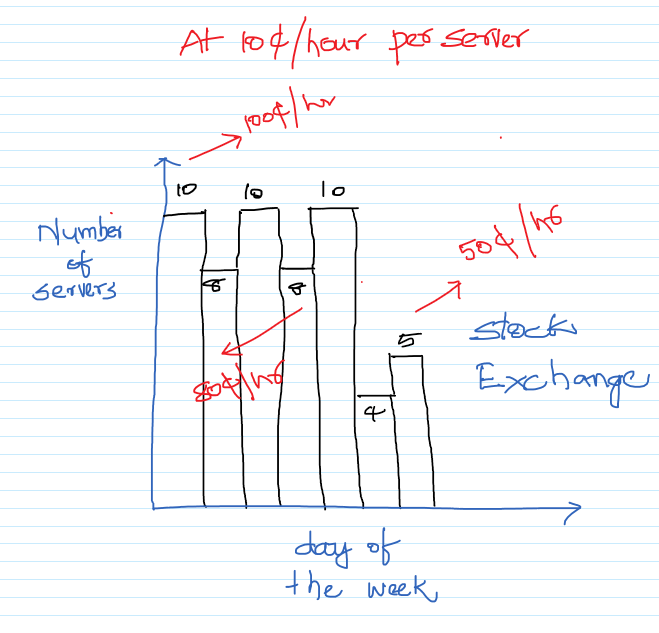 At 10¢/hour per server
100¢/hr
10 10 10
Number
of
servers
8 8
50¢/hr
80¢/hr
5
Stock
Exchange
4
day of
the week